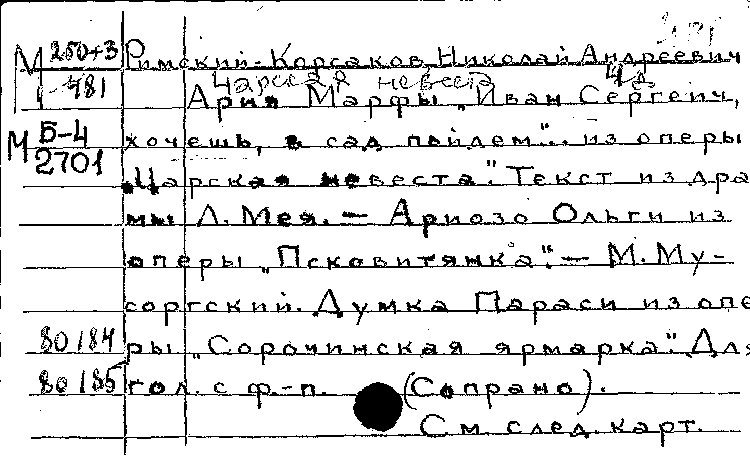 М 250+3 Римский-Корсаков, Николай Андреевич
481 Царская невеста
Ария Марфы „Иван Сергеич,
М Б-4 хочешь, в сад пойдем"... из оперы
2701
„Царская невеста". Текст из дра
мы Л. Мея. — Ариозо Ольги из
оперы „Псковитянка". — М. Му-
соргский. Думка Параси из опе
80184 ры „Сорочинская ярмарка". Для
80185 гол. с ф.-п. (Сопрано).
См. след. карт.